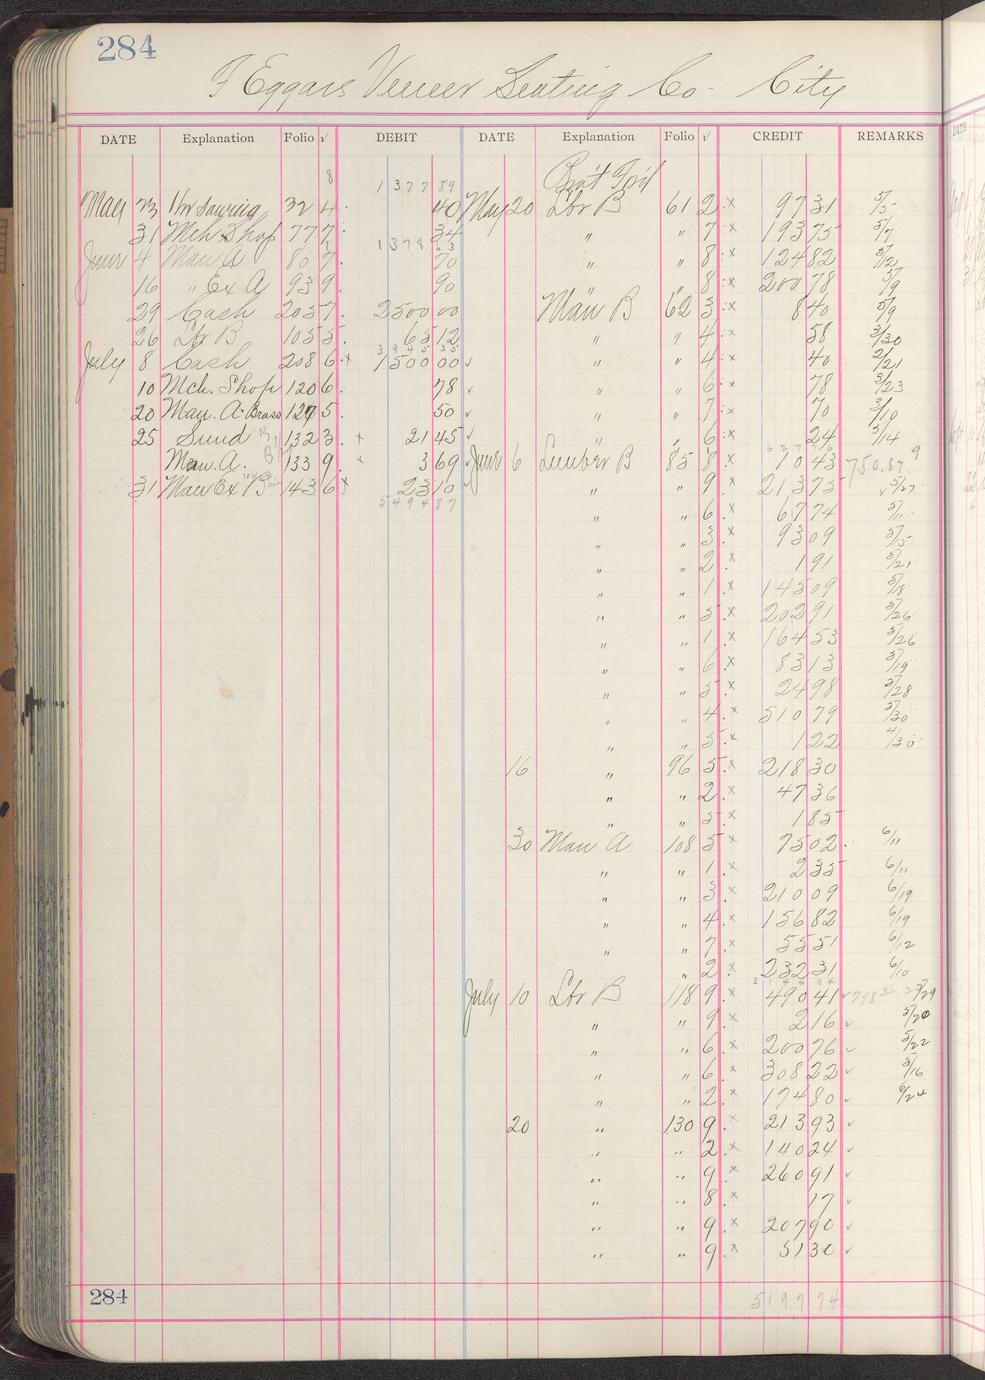 284
F Eggars Veneer Seating Co. City
DATE Explanation Folio √ DEBIT DATE Explanation Folio √ CREDIT REMARKS
8 1377 89
May 23 Inv Sawing 32 4 40 May 20 Lbr B 61 2 x 97 31 5/5
31 Mch Shop 77 7 34 " " 7 x 193 75 5/7
1 1378 63
June 4 Man A 80 7 70 " " 8 x 124 82 5/12
16 " Ex A 93 9 90 " " 8 x 200 78 5/9
29 Cash 203 7 2500 00 Man B 62 3 x 8 40 5/9
26 Lbr B 105 5 65 12 " " 4 x 58 3/30
3945 35
July 8 Cash 208 6 x 1500 00 √ " " 4 x 40 2/21
10 Mch. Shop 120 6 78 √ " " 6 x 78 3/23
20 Man. A. Brass 127 5 50 √ " " 7 x 70 3/10
25 Sund B 132 3 x 21 45 √ " " 6 x 24 3/14
Man. A. 133 9 x 3 69 √ June 6 Lumber B 85 8 x 10 43 750.87 9
31 Man Ex B 143 6 x 23 10 " " 9 x 213 75 √ 5/27
5494 87 " " 6 x 67 74 5/11
" " 3 x 93 09 5/5
" " 2 x 1 91 5/21
" " 1 x 145 09 5/18
" " 5 x 202 91 5/26
" " 1 x 164 53 5/26
" " 6 x 83 13 5/19
" " 5 x 24 98 5/28
" " 4 x 510 79 5/30
" " 5 x 1 22 4/30
16 " 96 5 x 218 30
" " 2 x 47 36
" " 5 x 1 85
30 Man A 108 5 x 75 02 6/11
" " 1 x 2 35 6/11
" " 3 x 210 09 6/19
" " 4 x 156 82 6/19
" " 7 x 55 51 6/12
" " 2 x 232 31 6/10
July 10 Lbr B 118 9 x 490 41 √ 5/29
" " 9 x 2 16 √ 5/20
" " 6 x 200 76 √ 5/22
" " 6 x 308 22 √ 5/16
" " 2 x 174 80 √ 6/24
20 " 130 9 x 213 93 √
" " 2 x 140 24 √
" " 9 x 260 91 √
" " 8 x 17 √
" " 9 x 207 90 √
" " 9 x 51 30 √
284 5197 74